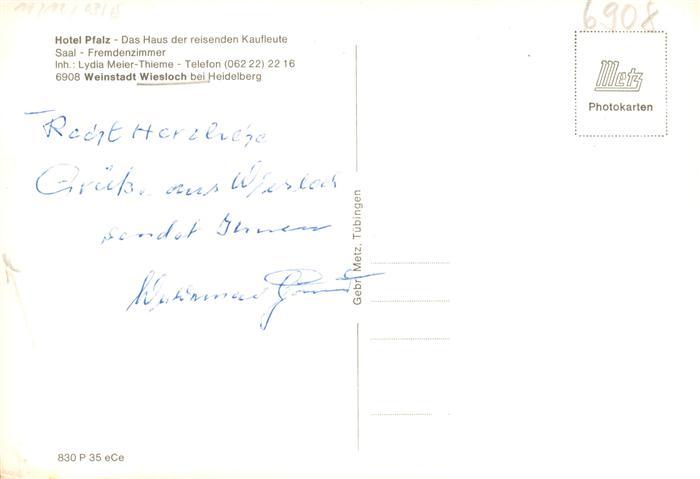 6908
Hotel Pfalz - Das Haus der reisenden Kaufleute
Saal - Fremdenzimmer
Inh.: Lydia Meier-Thieme - Telefon (0 62 22) 22 16
6908 Weinstadt Wiesloch bei Heidelberg
Metz
Photokarten
Recht Herzliche
Grüße aus Wiesloch
sendet Ihnen
Gebr. Metz, Tübingen
830 P 35 eCe